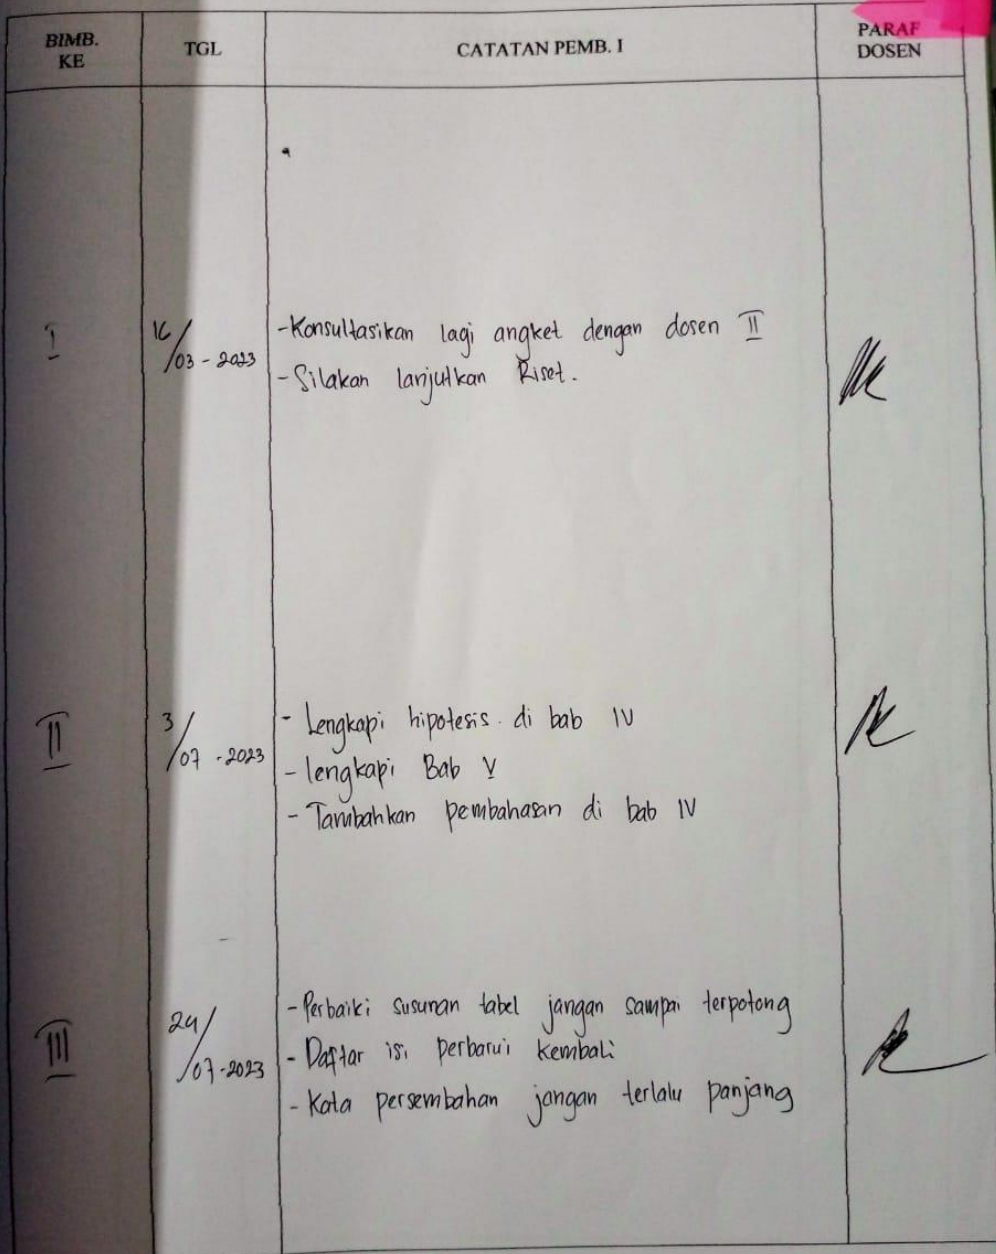 BIMB. KE TGL CATATAN PEMB. I PARAF DOSEN
I 16/03-2023 -Konsultasikan lagi angket dengan dosen II
-Silakan lanjutkan Riset.
II 3/07-2023 - Lengkapi hipotesis. di bab IV
- lengkapi Bab V
- Tambahkan pembahasan di bab IV
III 24/07-2023 - Perbaiki susunan tabel jangan sampai terpotong
- Daftar isi perbarui kembali
- Kata persembahan jangan terlalu panjang